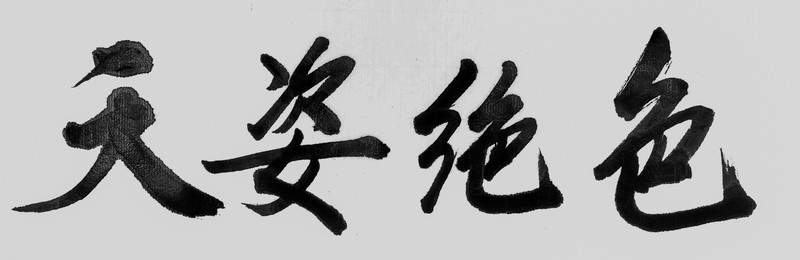 天姿绝色